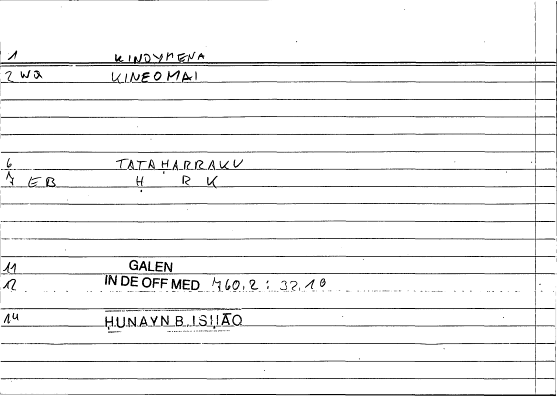 1 KINDYMENA
2 WA KINEOMAI
6 TATAḤARRAKU
7 EB Ḥ R K
11 GALEN
12 IN DE OFF MED 760.2 : 32.10
14 ḤUNAYN B. ISḤĀQ